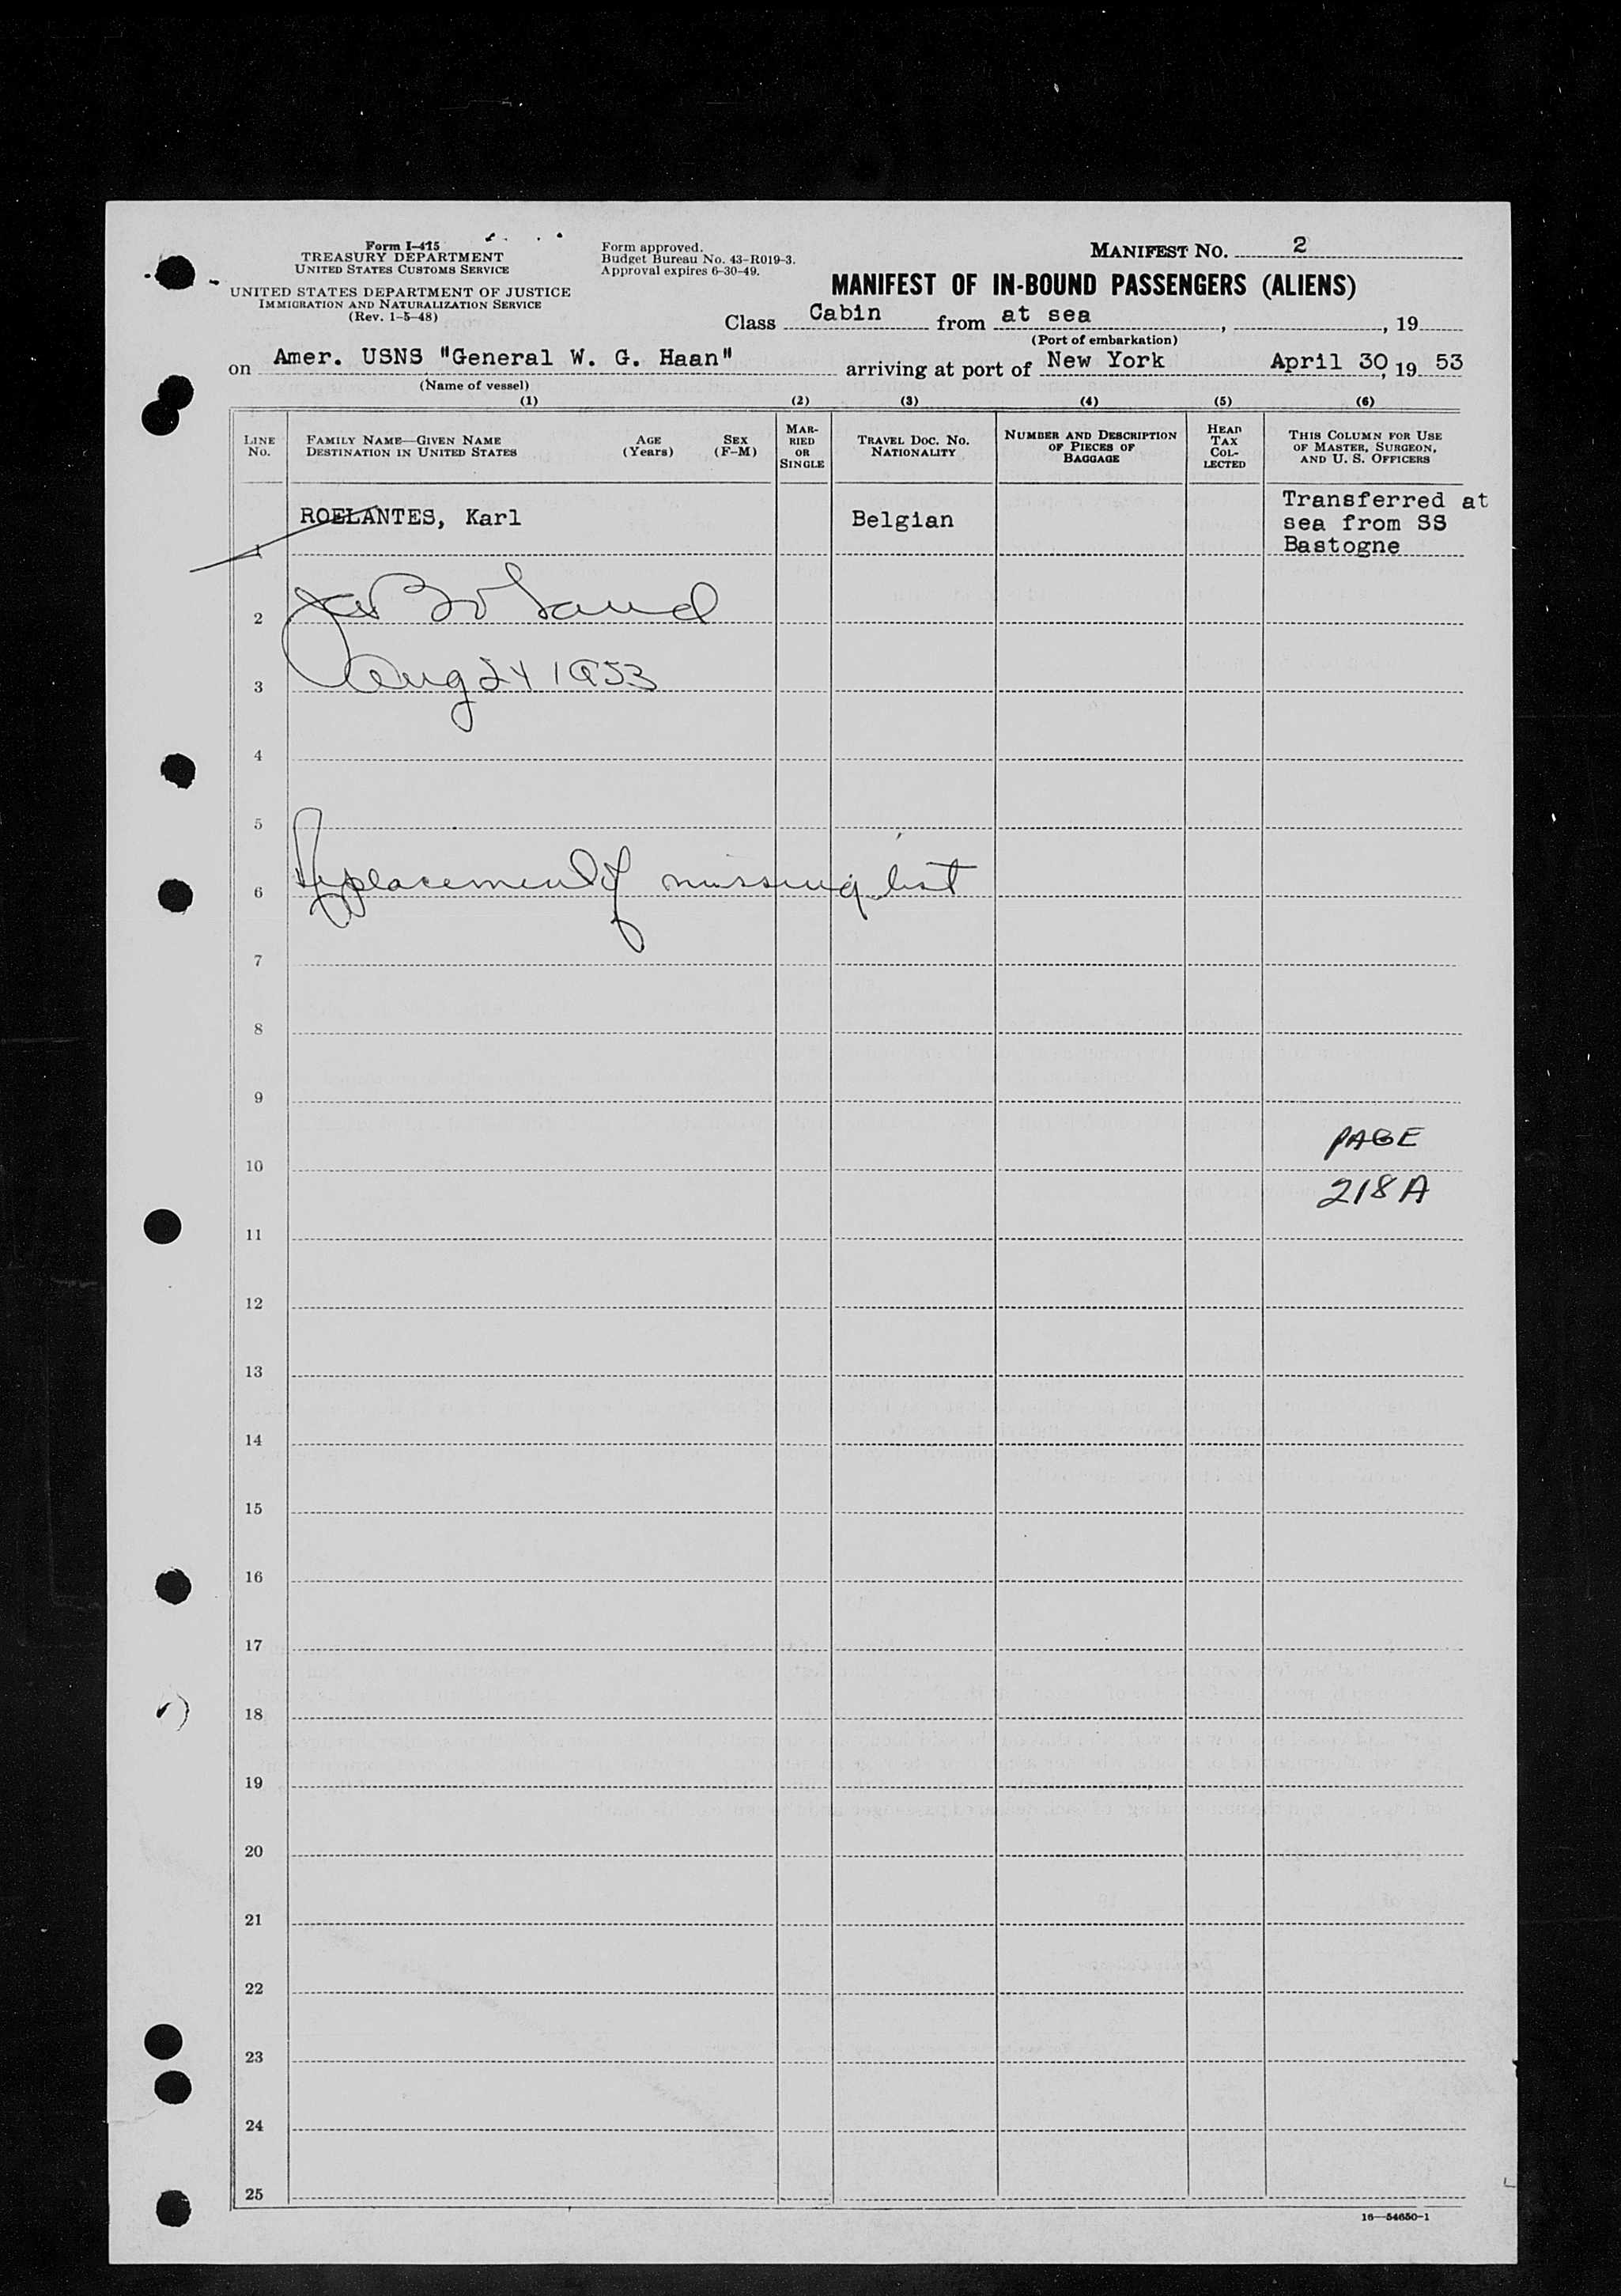 Form I-415
TREASURY DEPARTMENT
UNITED STATES CUSTOMS SERVICE
UNITED STATES DEPARTMENT OF JUSTICE
IMMIGRATION AND NATURALIZATION SERVICE
(Rev. 1-5-48)
Form approved.
Budget Bureau No. 43-R019-3.
Approval expires 6-30-49.
MANIFEST NO. 2
MANIFEST OF IN-BOUND PASSENGERS (ALIENS)
Class Cabin from at sea , , 19
(Port of embarkation)
on Amer. USNS "General W. G. Haan" arriving at port of New York April 30, 19 53
(Name of vessel)
(1) (2) (3) (4) (5) (6)
LINE NO.
FAMILY NAME—GIVEN NAME
DESTINATION IN UNITED STATES
AGE (Years)
SEX (F-M)
MARRIED OR SINGLE
TRAVEL DOC. NO.
NATIONALITY
NUMBER AND DESCRIPTION
OF PIECES OF
BAGGAGE
HEAD
TAX
COL-
LECTED
THIS COLUMN FOR USE
OF MASTER, SURGEON,
AND U. S. OFFICERS
1 ROELANTES, Karl Belgian Transferred at
sea from SS
Bastogne
2 Boland
3 Aug 24 1953
4
5
6 Replacement of missing list
7
8
9
PAGE
10
218A
11
12
13
14
15
16
17
18
19
20
21
22
23
24
25
16—54650-1